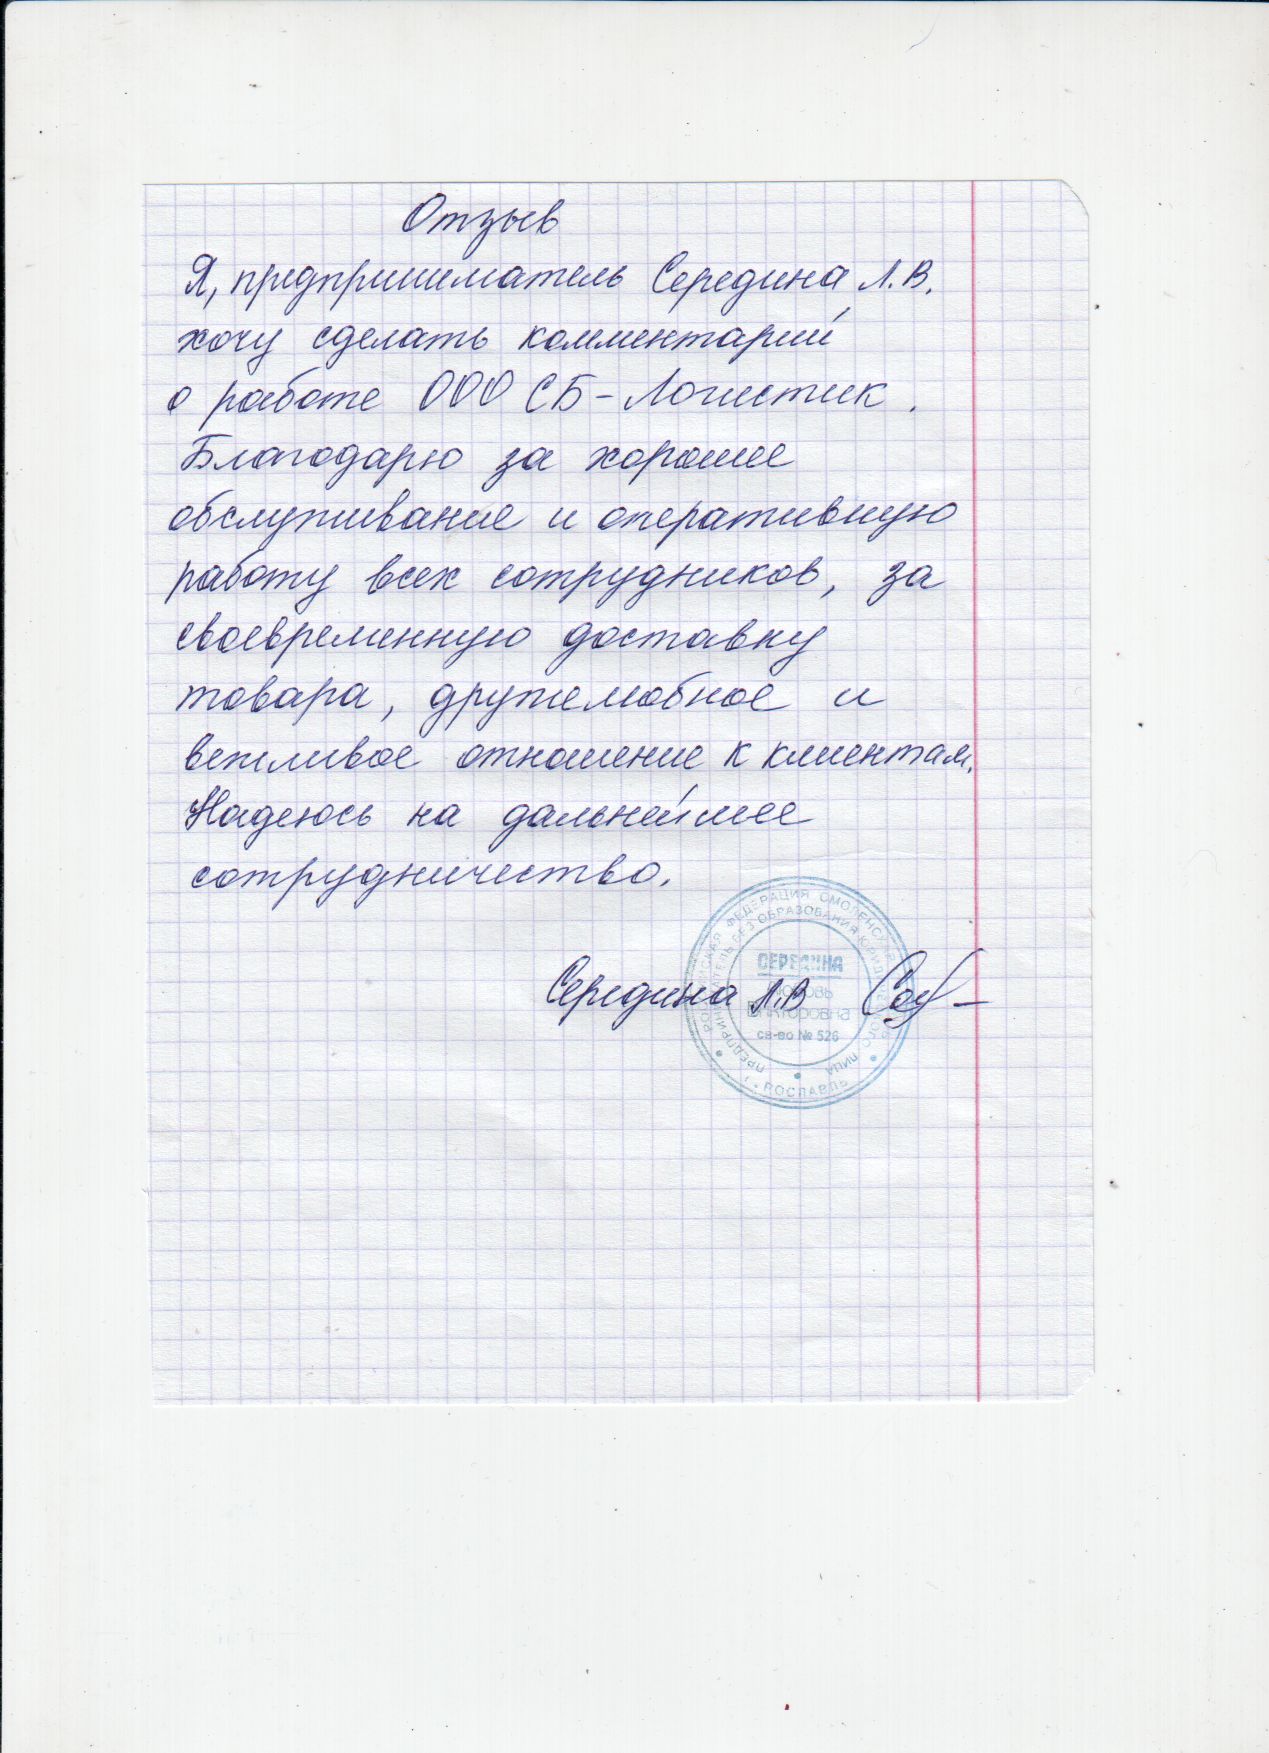 Отзыв
Я, предприниматель Середина Л.В.
хочу сделать комментарий
о работе ООО СБ-Логистик.
Благодарю за хорошее
обслуживание и оперативную
работу всех сотрудников, за
своевременную доставку
товара, дружелюбное и
вежливое отношение к клиентам.
Надеюсь на дальнейшее
сотрудничество.
Середина Л.В
РОССИЙСКАЯ ФЕДЕРАЦИЯ СМОЛЕНСКАЯ
г. РОСЛАВЛЬ
ПРЕДПРИНИМАТЕЛЬ БЕЗ ОБРАЗОВАНИЯ ЮРИДИЧЕСКОГО ЛИЦА
СЕРЕДИНА
Любовь
Викторовна
св-во № 526